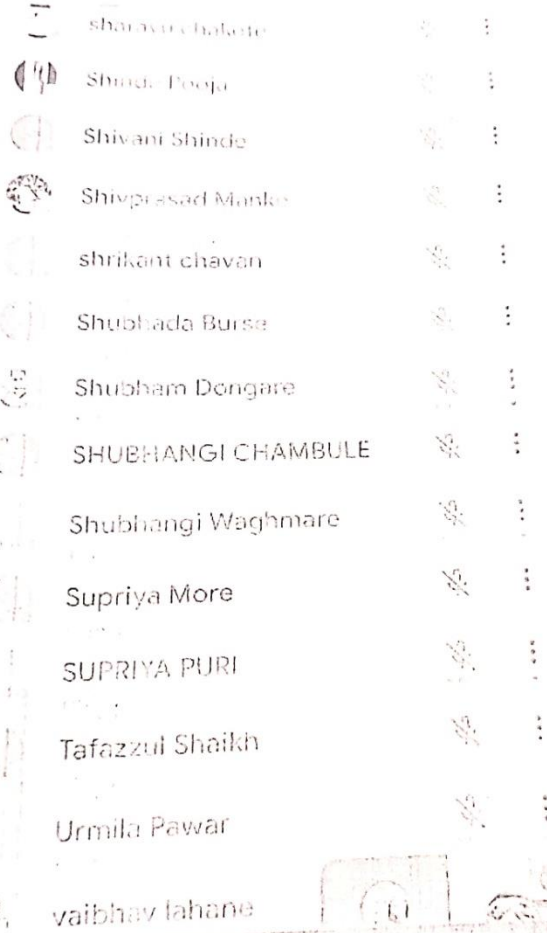 Shinde Pooja
Shivani Shinde
Shivprasad
shrikant chavan
Shubhada Burse
Shubham Dongare
SHUBHANGI CHAMBULE
Shubhangi Waghmare
Supriya More
SUPRIYA PURI
Tafazzul Shaikh
Urmila Pawar
vaibhav lahane